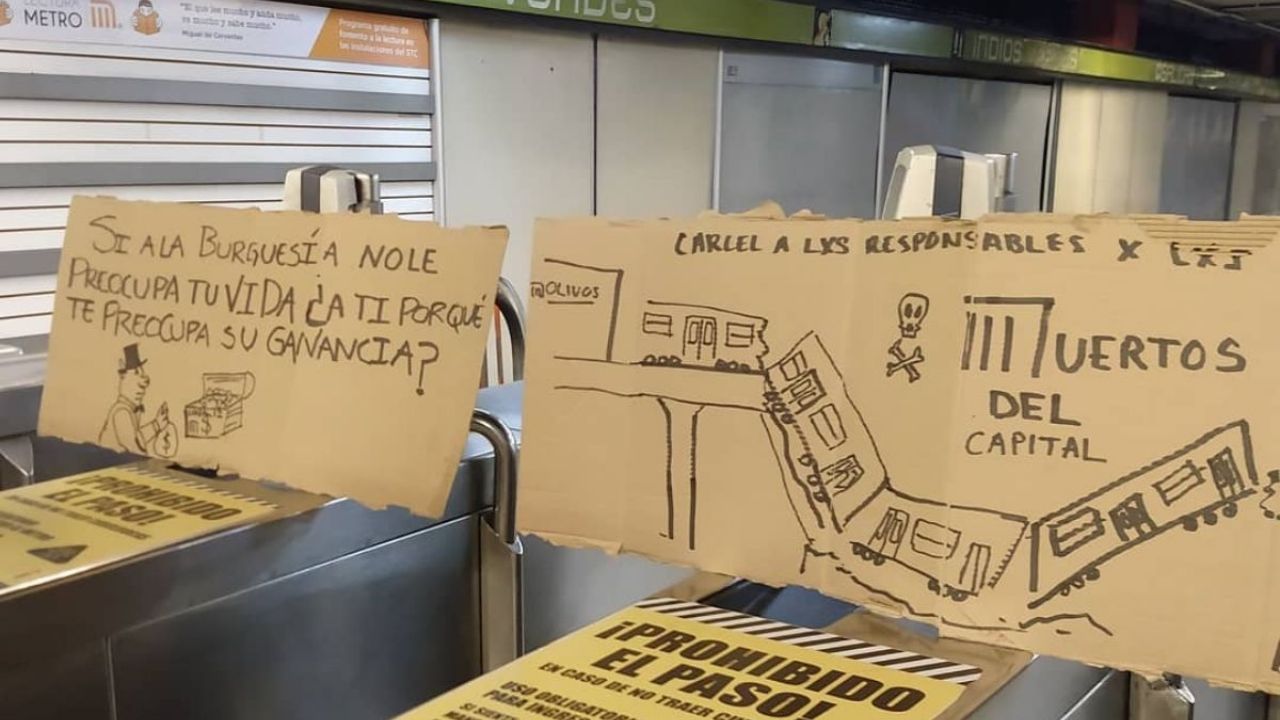 METRO
"El que lee mucho y anda mucho,
ve mucho y sabe mucho."
Miguel de Cervantes
Programa gratuito de
fomento a la lectura en
las instalaciones del STC
INDIOS
SI A LA BURGUESÍA NO LE
PREOCUPA TU VIDA ¿A TI PORQUÉ
TE PREOCUPA SU GANANCIA?
$
CARCEL A LXS RESPONSABLES X LXS
OLIVOS
MUERTOS
DEL
CAPITAL
¡PROHIBIDO
EL PASO!
¡PROHIBIDO
EL PASO!
EN CASO DE NO TRAER
USO OBLIGATORIO
PARA